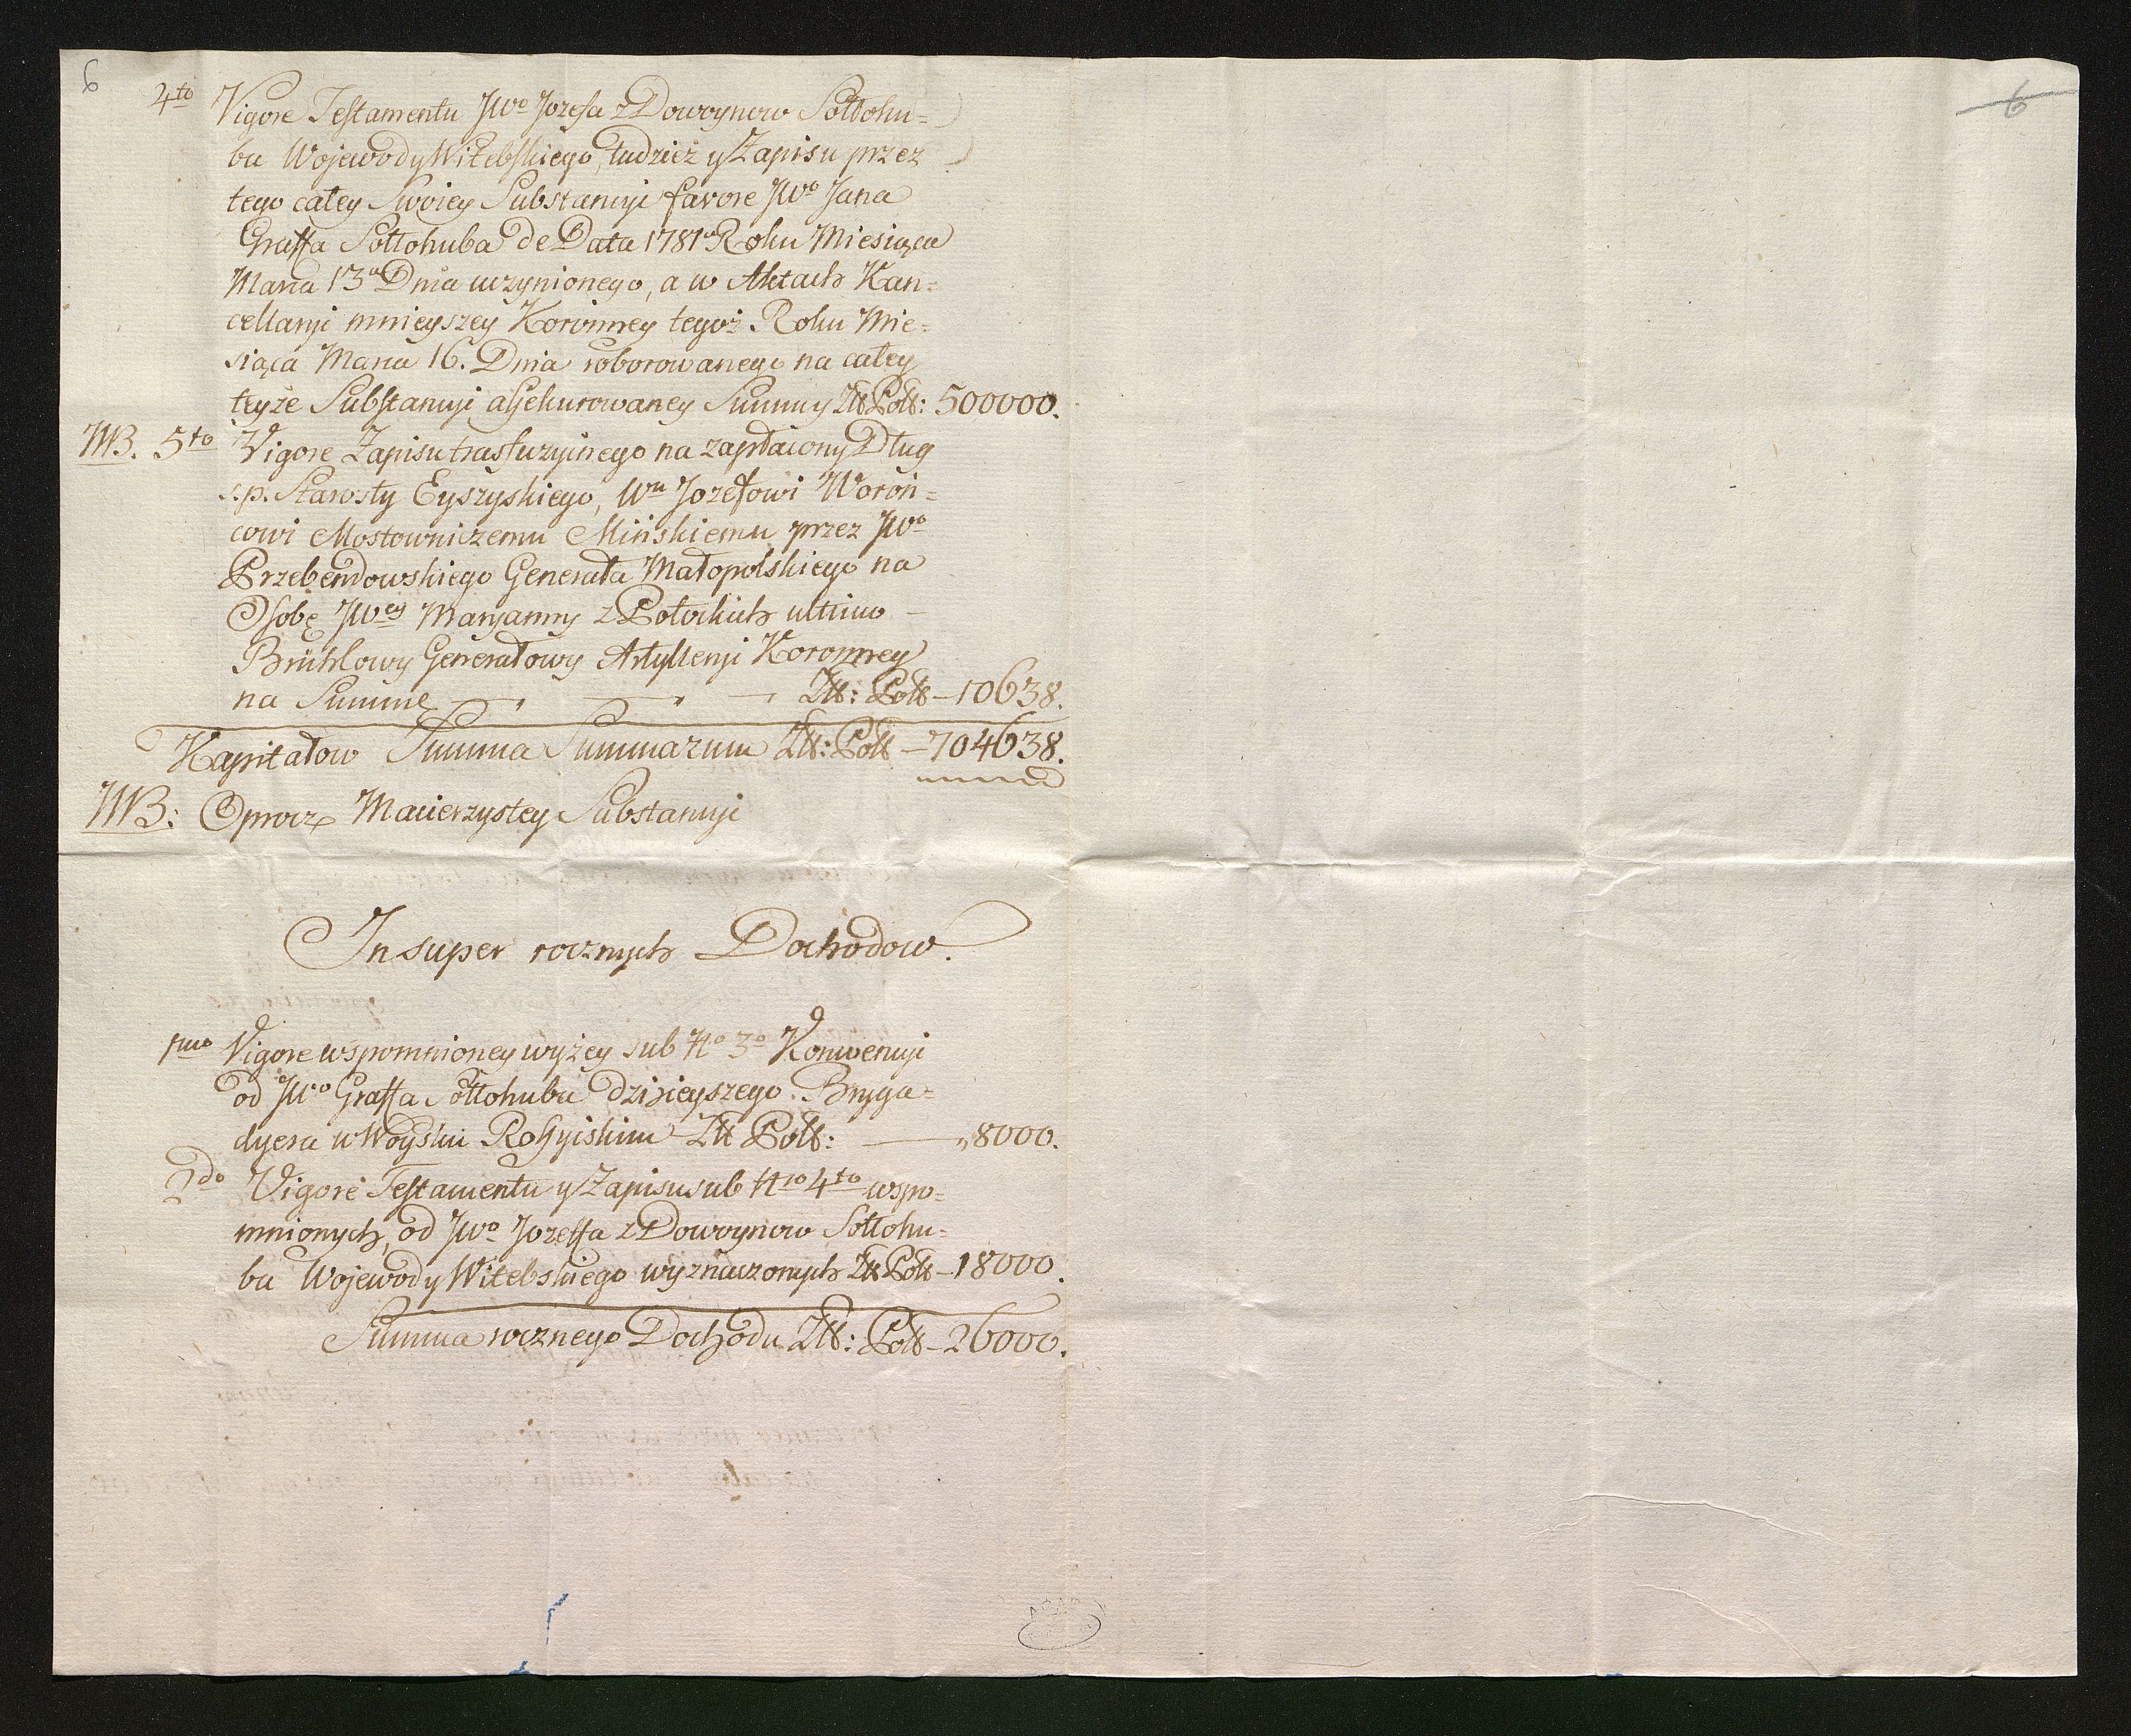 6
6
4to Vigore Testamentu JWo Jozefa z Dowoynow Sołłohu=
bu Wojewody Witebskiego, tudzież y Zapisu przez
tego całey Swoiey Substancyi favore JWo Jana
Graffa Sołłohuba de Data 1781o Roku Miesiąca
Marca 13o Dnia uczynionego, a w Aktach Kan=
cellaryi mnieyszey Koronney tegoż Roku Mie=
siąca Marca 16. Dnia roborowanego na całey
teyże Substancyi assekurowaney Summy Złł Poll: 500000.
NB. 5to Vigore Zapisu trasfuzyinego na zapłacony Dług
s.p. Starosty Eyszyskiego, Wu Jozefowi Woroń=
cowi Mostowniczemu Mińskiemu przez JWo
Przebendowskiego Generała Małopolskiego na
Osobę JWey Maryanny z Potockich ultimo
Brühlowy Generałowy Artylleryi Koronney
na Summę Złł: Poll - 10638.
Kapitałow Summa Summarum Złł: Poll - 704638.
NB: Oprocz Macierzystey Substancyi
Insuper rocznych Dochodow.
1mo Vigore wspomnioney wyżey sub No 3o Konwencyi
od JWo Graffa Sołłohuba dzisieyszego Bryga=
dyera w Woysku Rossyiskim Złł Poll: 8000.
2do Vigore Testamentu y Zapisu sub Nro 4to wspo=
mnionych, od JWo Jozeffa z Dowoynow Sołłohu=
bu Wojewody Witebskiego wyznaczonych Złł Poll - 18000.
Summa rocznego Dochodu Złł: Poll - 26000.